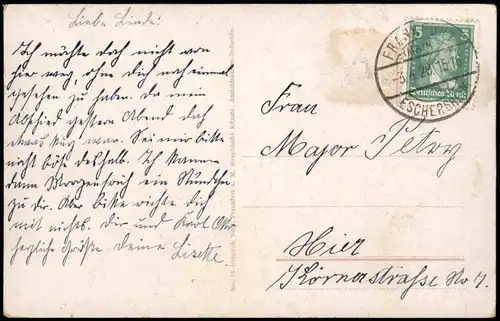 Liebe Linde!
Ich möchte doch nicht von
hier weg, ohne dich noch einmal
gesehen zu haben. Da mein
Abschied gestern Abend doch
etwas kurz war. Sei mir bitte
nicht böse deshalb. Ich komme
dann Morgenfrüh ein Stündchen
zu dir. Aber bitte richte dich
mit nichts. Dir und Karl Otto
herzliche Grüße deine Lisette.
Frau
Major Petry
Hier
Körnerstraße No 7.
5
Deutsches Reich
ESCHERSH